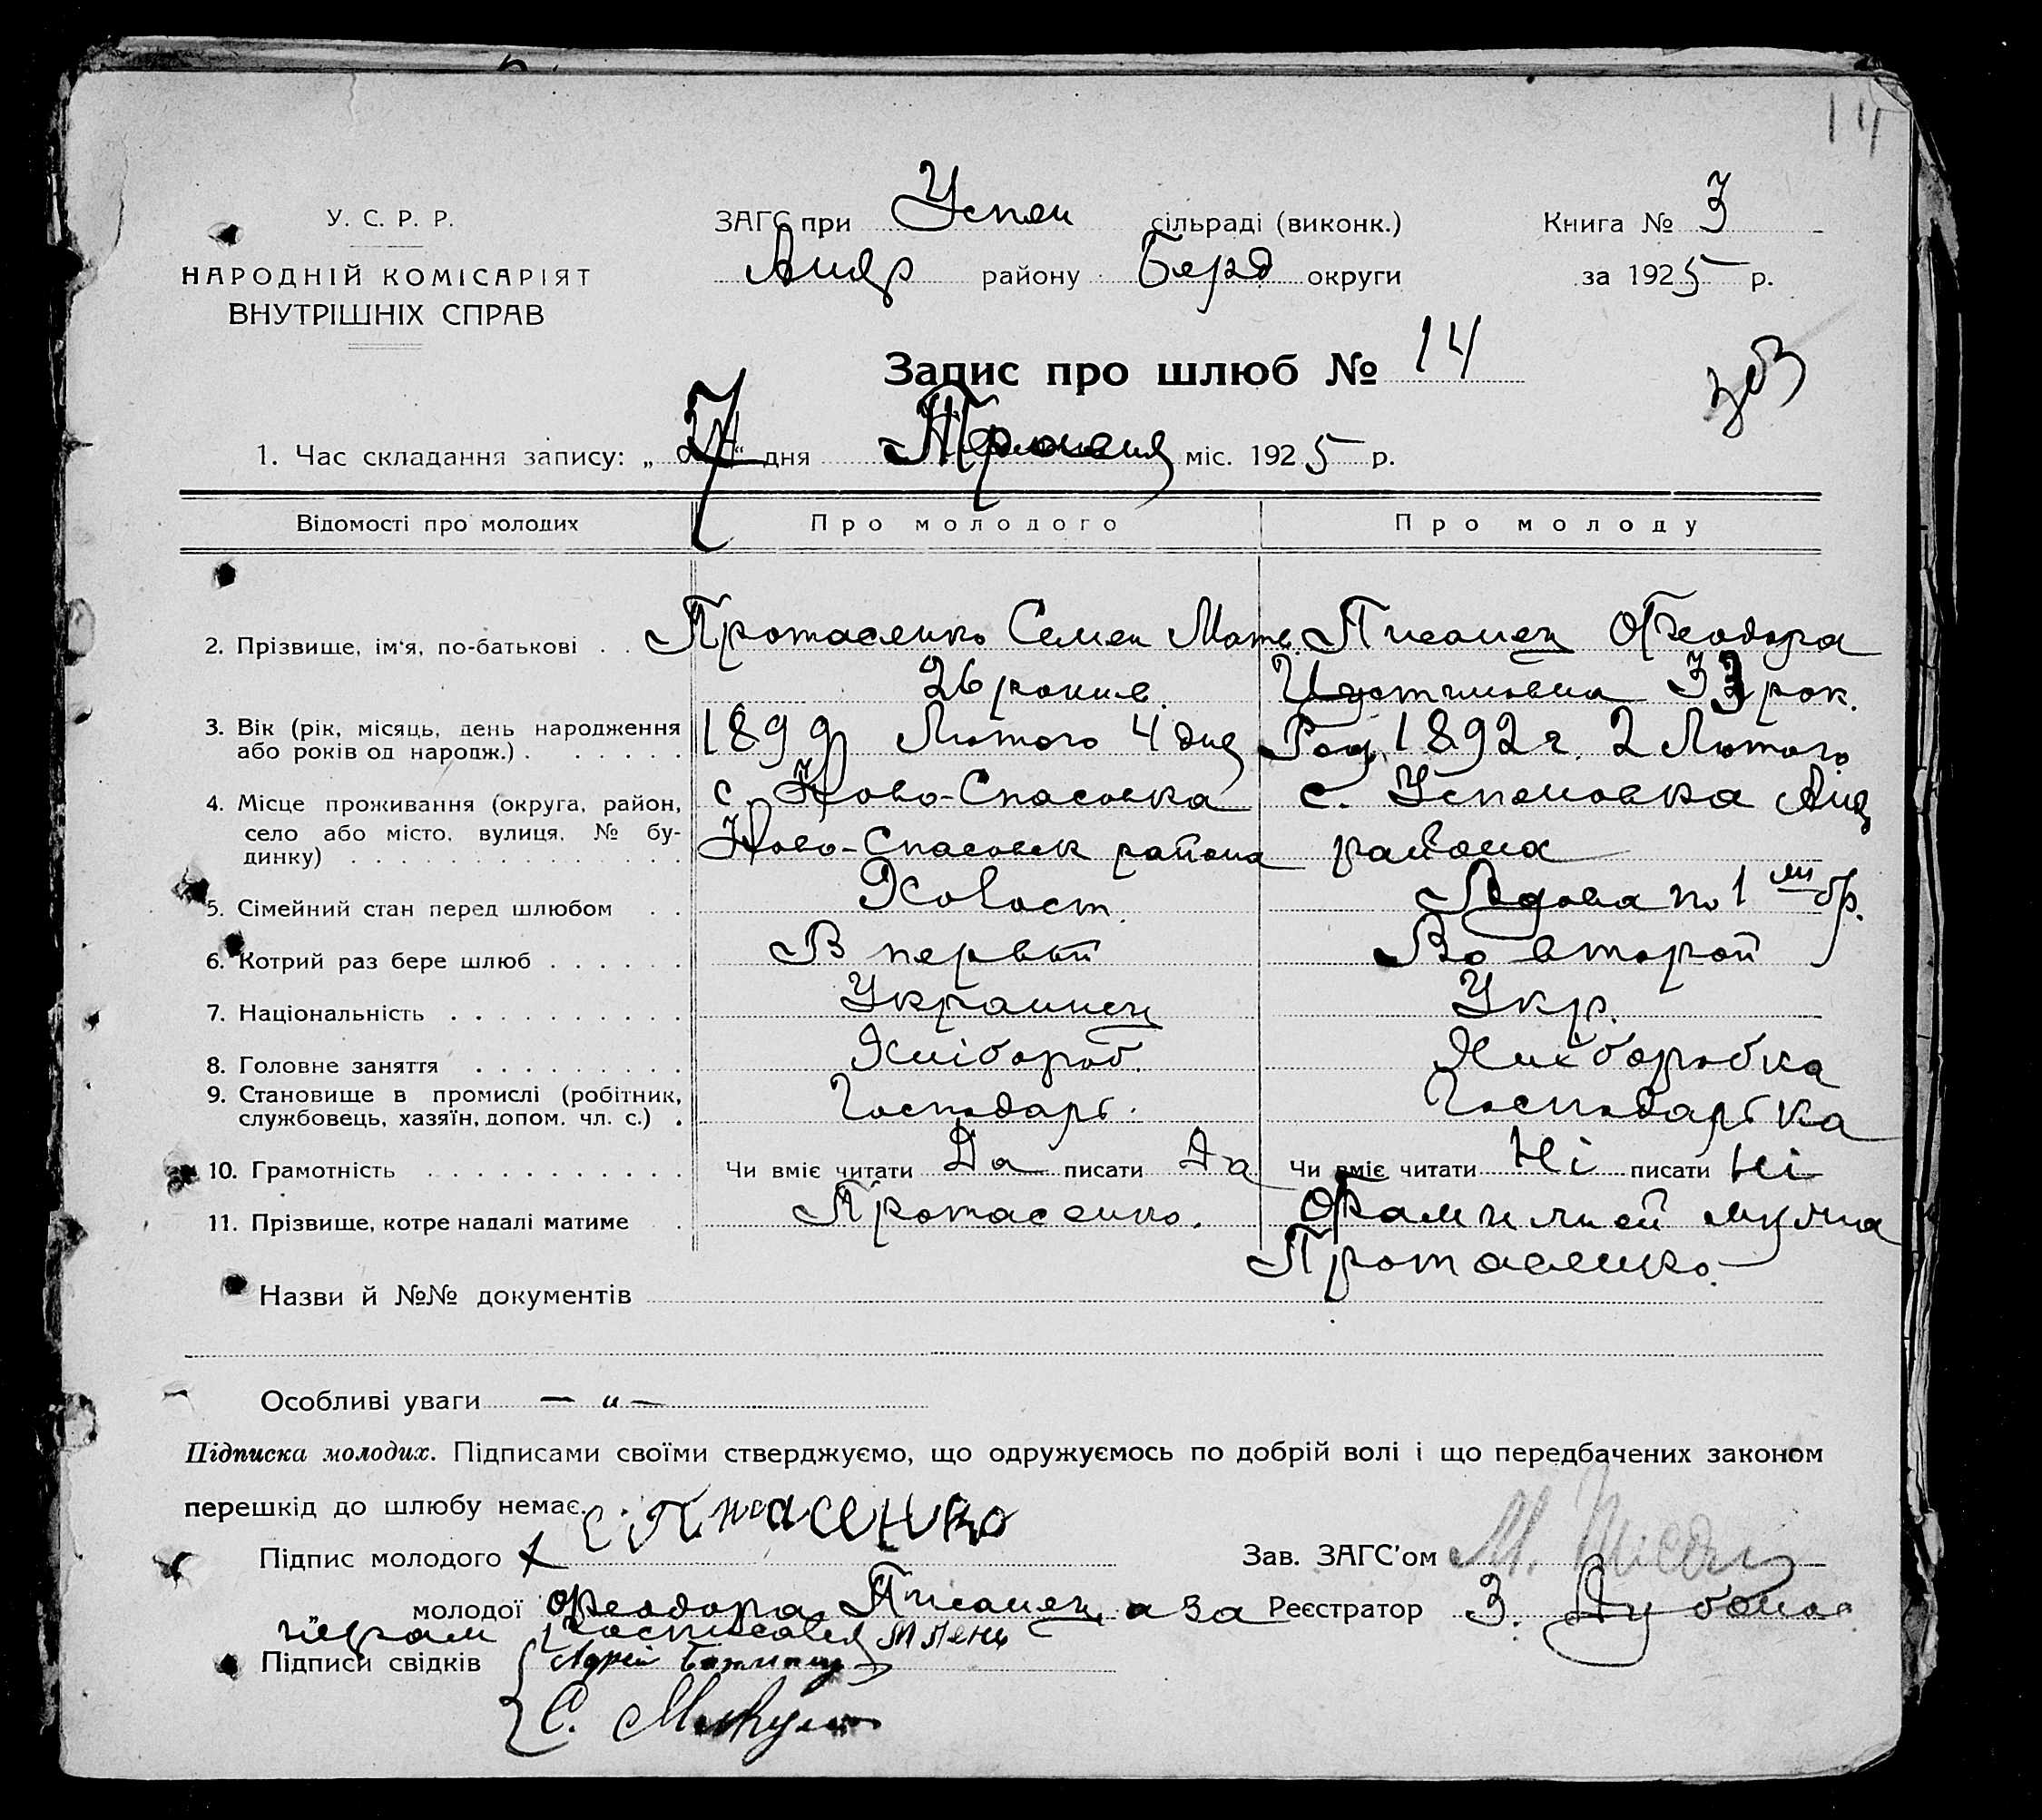 14
У. С. Р. Р.
НАРОДНІЙ КОМІСАРІЯТ
ВНУТРІШНІХ СПРАВ
ЗАГС при Успен сільраді (виконк.)
Андр району Берд округи
Книга № 3
за 1925 р.
Запис про шлюб № 14
1. Час складання запису: „ 7 “ дня міс. 1925 р.
Відомості про молодих Про молодого Про молоду
2. Прізвище, ім'я, по-батькові . . Протасенко Семен Матв. Писанец Феодора
26 рокив. Иустиновна 33 рок.
3. Вік (рік, місяць, день народження або років од народж.) . . . . . . 1899 Лютого 4 дня Род. 1892 г. 2 Лютого
4. Місце проживання (округа, район, село або місто, вулиця, № будинку) . . . с. Ново-Спасовка с. Успеновка Анд
Ново-Спасовск района района
5. Сімейний стан перед шлюбом . . Холост. Вдова по 1 ми бр.
6. Котрий раз бере шлюб . . . . . . В первый Во второй
7. Національність . . . . . . . . . . Украинец Укр.
8. Головне заняття . . . . . . . . . Хлібороб. Хліборобка
9. Становище в промислі (робітник, службовець, хазяїн, допом. чл. с.) . Господарь. Господарька
10. Грамотність . . . . . . . . . . . . Чи вміє читати Да писати Да Чи вміє читати Ні писати Ні
11. Прізвище, котре надалі матиме . Протасенко. Фамилией мужа
Протасенко.
Назви й №№ документів
Особливі уваги — „ —
Підписка молодих. Підписами своїми стверджуємо, що одружуємось по добрій волі і що передбачених законом
перешкід до шлюбу немає.
Підпис молодого х
Зав. ЗАГС'ом М.
„ молодої Феодора Писанец а за
Реєстратор З.
неграм росписався
Підписи свідків
С.